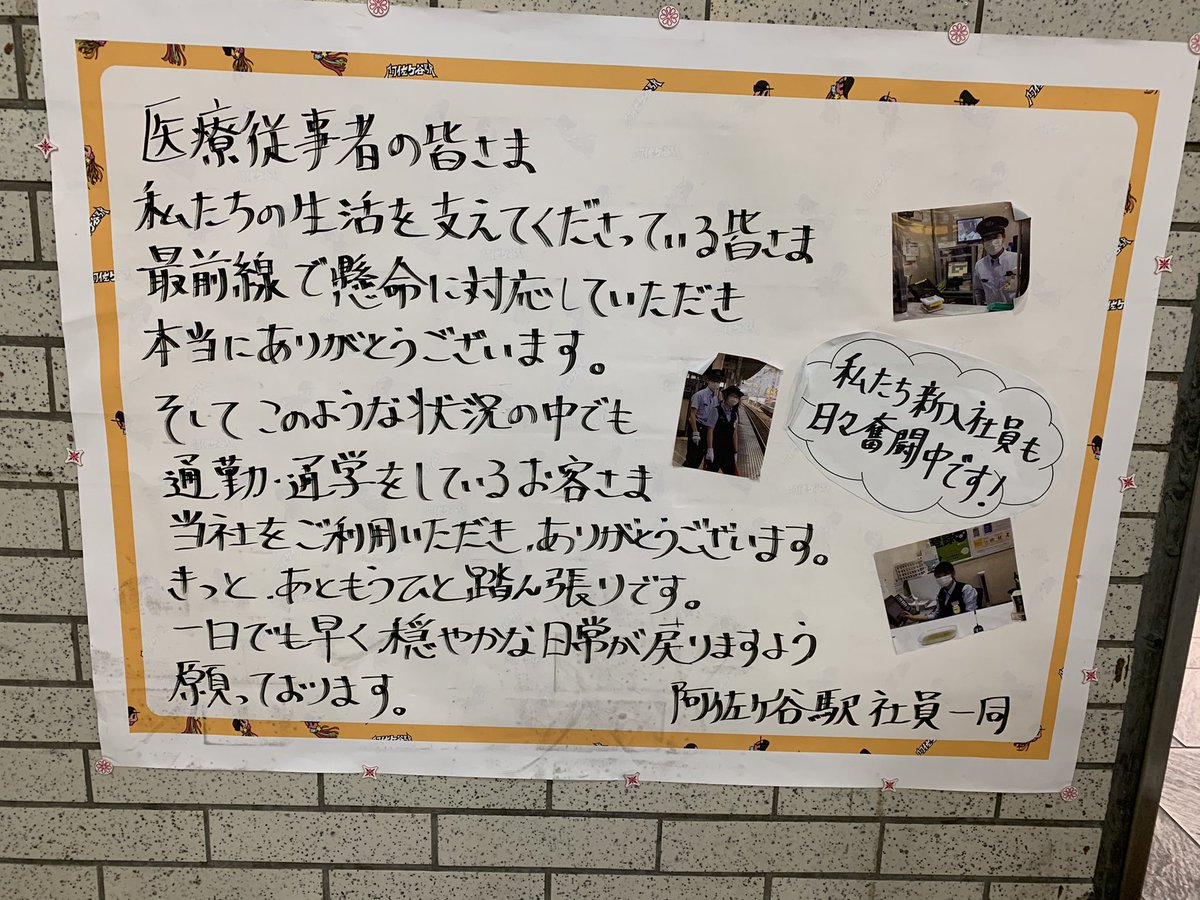 阿佐ケ谷駅
医療従事者の皆さま
私たちの生活を支えてくださっている皆さま
最前線で懸命に対応していただき
本当にありがとうございます。
そしてこのような状況の中でも
通勤・通学をしているお客さま
当社をご利用いただき、ありがとうございます。
きっと、あともうひと踏ん張りです。
一日でも早く穏やかな日常が戻りますよう
願っております。
阿佐ケ谷駅社員一同
私たち新入社員も
日々奮闘中です!